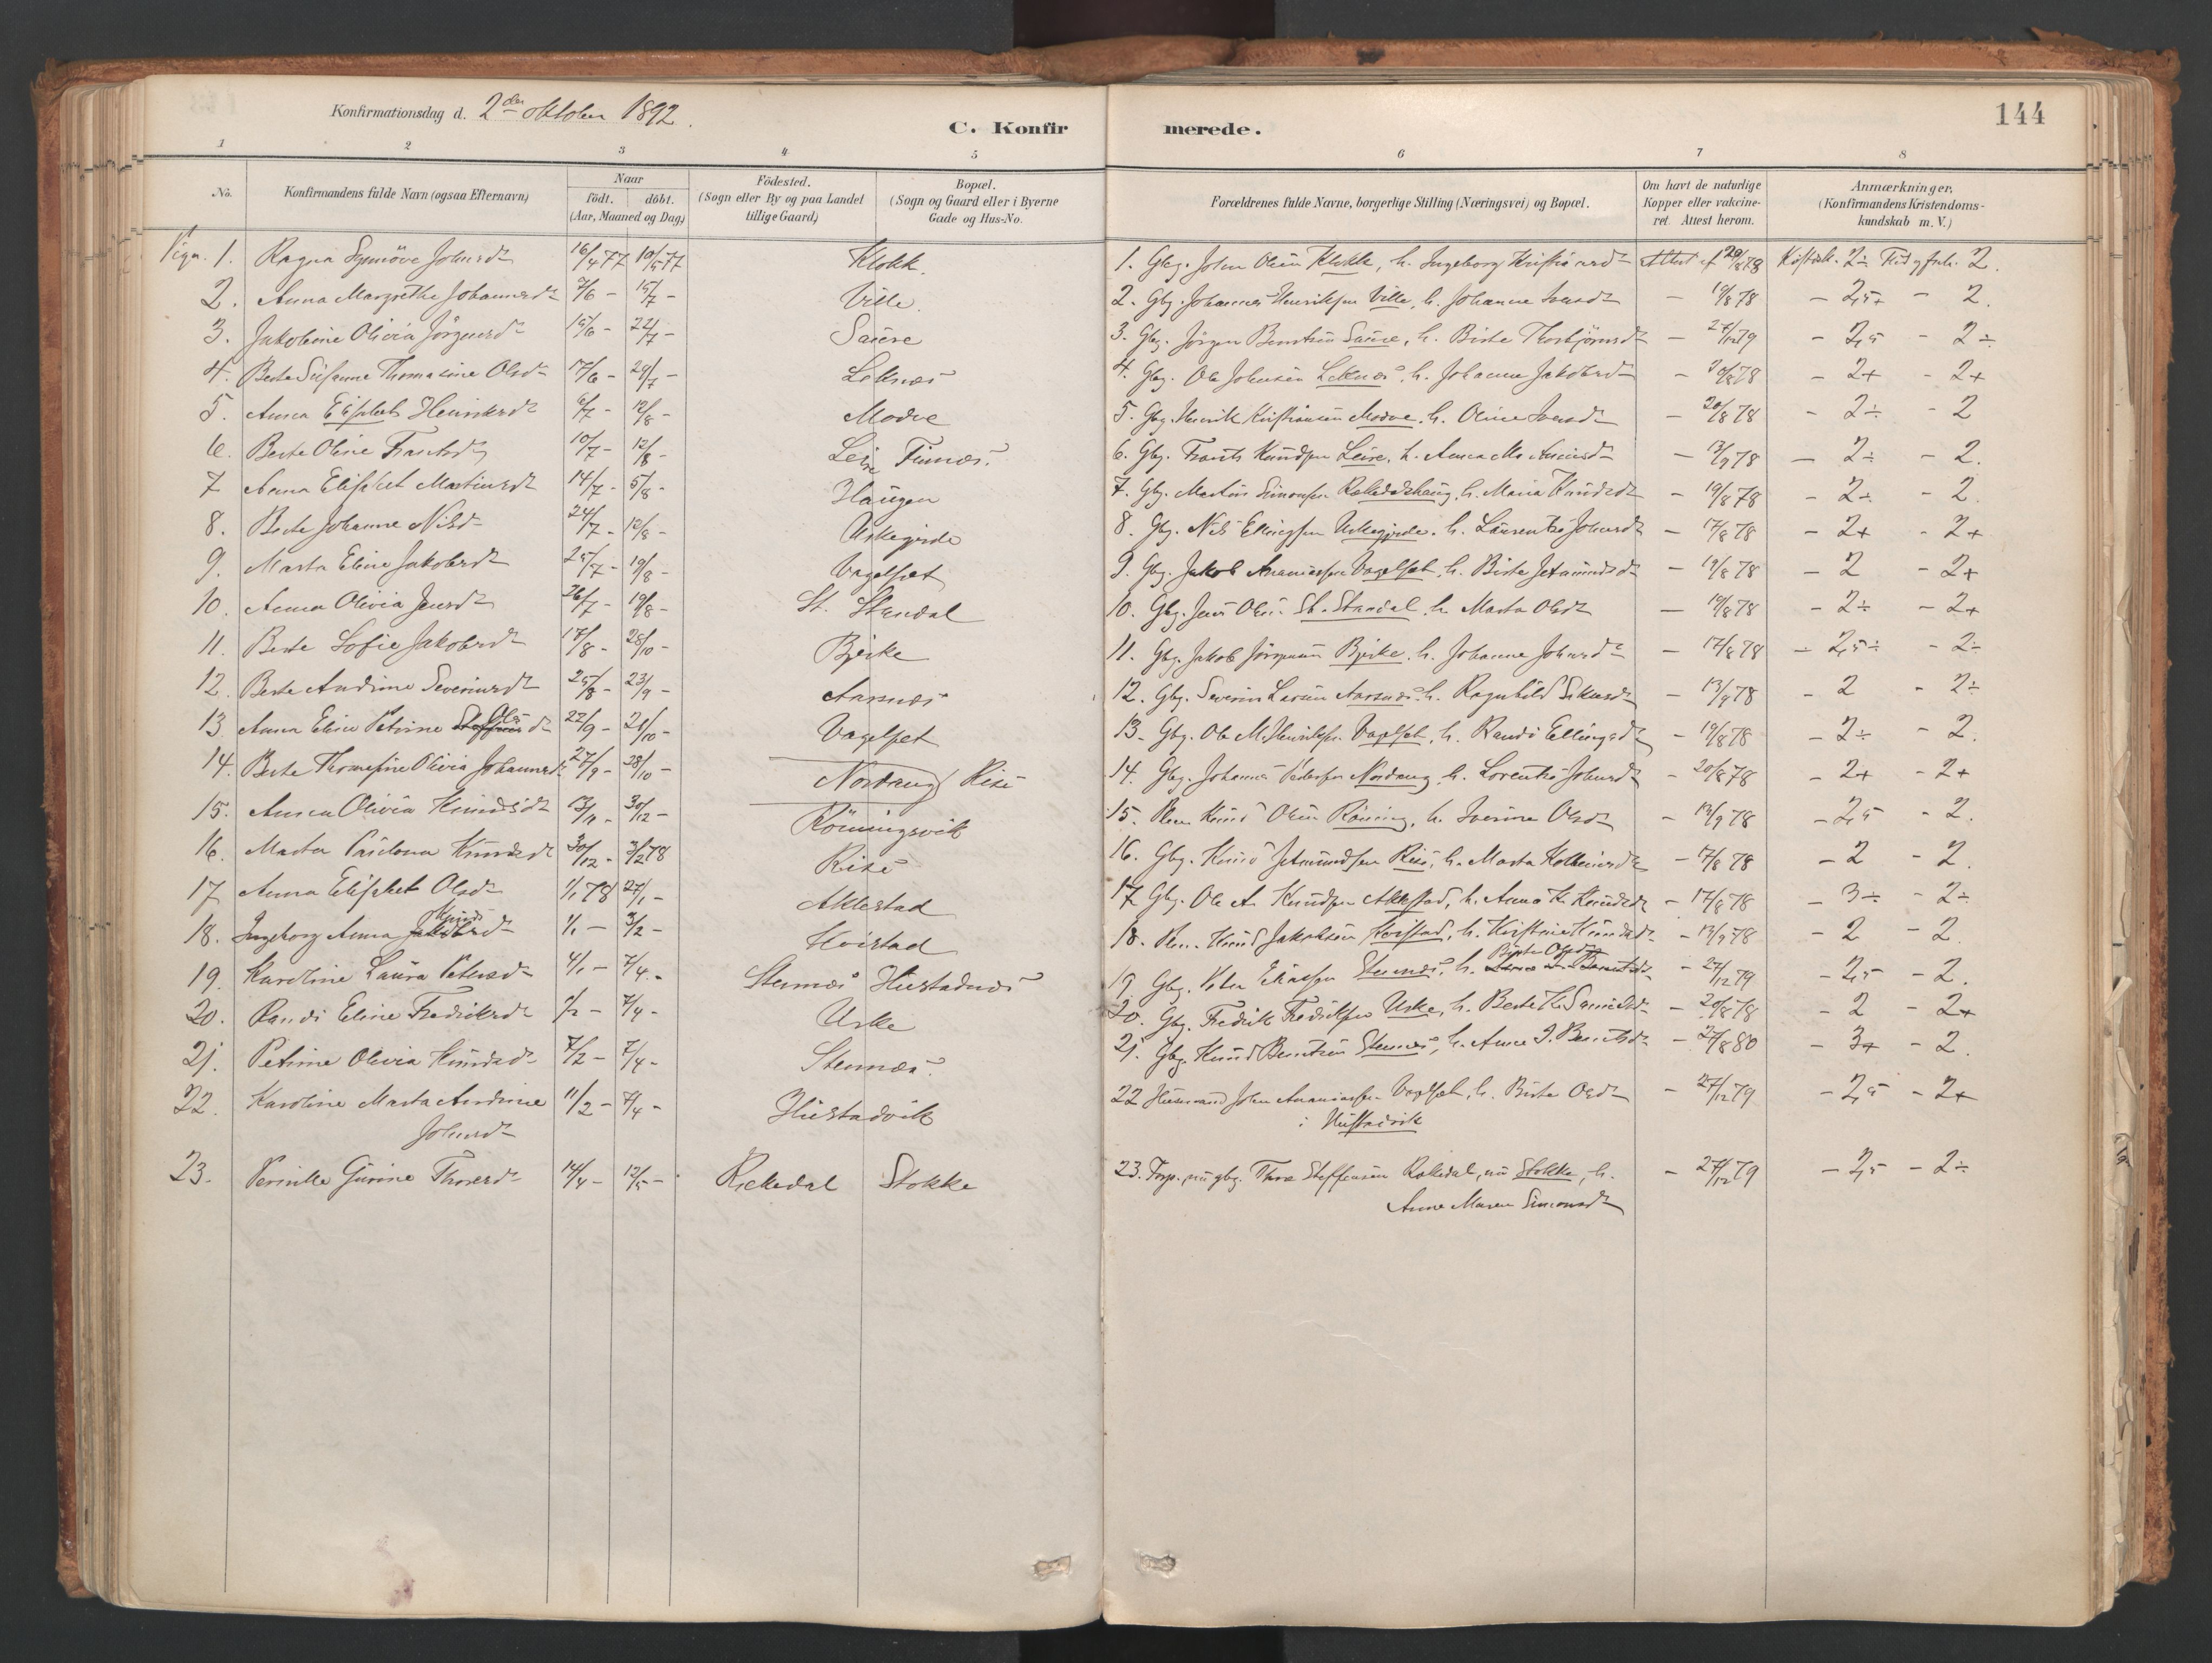 144
Konfirmationsdag d. 2den oktober 1892.
C. Konfirmerede.
1 2 3 4 5 6 7 8
No.
Konfirmandens fulde Navn (ogsaa Efternavn)
Naar
födt. döbt.
(Aar, Maaned og Dag)
Födested.
(Sogn eller By og paa Landet
tillige Gaard)
Bopæl.
(Sogn og Gaard eller i Byerne
Gade og Hus-No.
Forældrenes fulde Navne, borgerlige Stilling (Næringsvei) og Bopæl.
Om havt de naturlige
Kopper eller vakcine-
ret. Attest herom.
Anmærkninger,
(Konfirmandens Kristendoms-
kundskab m. V.)
1. Ragna Synnöve Johnsd. 16/4 77 10/5 77 Klokk. 1. Gbg. John Olsen Klokk, h. Ingeborg Attest af 20/8 78 2÷ 2.
2. Anna Margrethe Johannesd. 7/6 - 15/7 - Ville. 2. Gbg. Johannes Henriksen Ville, h. Johanne Iversd. - 19/8 78 - 2,5+ - 2.
3. Jakobine Olivia Jörgensd. 15/6 - 22/7 - Saure 3. Gbg. Jörgen Berntsen Saure, h. Birte - 27/12 79 - 2,5 - 2÷
4. Berte Susanne Thomasine Olsd. 17/6 - 29/7 - Leknæs 4. Gbg. Ole Johnsen Leknæs, h. Johanne Jakobsd. - 20/8 78 - 2+ - 2+
5. Anna Elisabet Henriksd. 6/7 - 12/8 - Modve 5. Gbg. Henrik Kristiansen Modve, h. Oline Iversd. - 20/8 78 - 2÷ - 2
6. Berte Oline Frantsd. 10/7 - 12/8 - Leire Finnæs. 6. Gbg. Frants Knudsen Leire, h. Anna M. - 13/9 78 - 2÷ - 2.
7 Anna Elisabet Martinsd. 14/7 - 5/8 - Haugen 7. Gbg. Martin Simonsen h. Maria Knudsd. - 19/8 78 - 2÷ - 2
8. Berte Johanne Nilsd. 24/7 - 12/8 - Urkegjerde 8. Gbg. Nils Ellingsen Urkegjerde, h. Laurentse Johnsd. - 17/8 78 - 2+ - 2+
9. Marta Eline Jakobsd. 25/7 - 19/8 - Vagelset 9. Gbg. Jakob Ananiassen Vagelset, h. Birte Jetmundsd. - 19/8 78 - 2 - 2+
10. Anna Olivia Jensd. 26/7 - 19/8 - St. Standal 10. Gbg. Jens Olsen St. Standal, h. Marta Olsd. - 19/8 78 - 2÷ - 2+
11. Berte Sofie Jakobsd. 17/8 - 28/10 - Bjerke 11. Gbg. Jakob Jörgensen Bjerke, h. Johanne Johnsd. - 17/8 78 - 2,5÷ - 2÷
12. Berte Andrine Severinsd. 25/8 - 23/9 - Aarsnæs 12. Gbg. Severin Larsen Aarsnæs, h. Ragnhild - 13/9 78 - 2 - 2÷
13. Anna Eline Petrine Olesd. 22/9 - 21/10 - Vagelset 13. Gbg. Ole M. Henriksen Vagelset, h. Randi Ellingsd. - 19/8 78 - 2÷ - 2.
14. Berte Thomasine Olivia Johannesd. 27/9 - 28/10 - Nordang Rise 14. Gbg. Johannes Pedersen Nordang, h. Lorentse Johnsd. - 20/8 78 - 2+ - 2+
15. Anna Olivia Knudsd. 13/11 - 30/12 - Rönningsvik 15. Knud Olsen Röning, h. Iverine Olsd. - 13/9 78 - 2,5 - 2.
16. Marta Knudsd. 30/12 - 3/2 78 Rise 16. Gbg. Knud Jetmundsen Rise, h. Marta - 17/8 78 - 2 - 2.
17. Anna Elisabet Olsd. 1/1 78 27/1 - Aklestad 17 Gbg. Ole A. Knudsen Aklestad, h. Anna K. Knudsd. - 17/8 78 - 3÷ - 2÷
18. Ingeborg Anna Knudsd. 1/1 - 3/2 - Hvistad 18. Knud Jakobsen Hvistad, h. Kristine Knudsd. - 13/9 78 - 2 - 2
19. Karoline Laura Petersd. 4/1 - 7/4 - Stennæs Hustadnæs 19 Gbg. Peter Eliassen Stennæs, h. Birte Olsd. - 27/12 79 - 2,5 - 2.
20. Randi Eline Fredriksd. - 7/4 - Urke 20. Gbg. Fredrik Fredriksen Urke, h. Berte - 20/8 78 - 2 - 2+
21. Petrine Olivia Knudsd. 7/2 - 7/4 - Stennæs. 21. Gbg. Knud Berntsen Stennæs, h. Anne J. Berntsd. - 27/8 80 - 3+ - 2.
22. Karoline Marta Andrine 11/2 - 7/4 - Hustadvik 22 Husmand John Ananiassen Vagelset, h. Birte Olsd. - 27/12 79 - 2,5 - 2+
Johnsd. i Hustadvik
23. Pernille Gurine Thoresd. 14/4 - 12/5 - Rekkedal Stokke 23. Forp., nu gbg. Thore Steffensen Rekedal, nu Stokke, h. - 27/12 79 - 2,5 - 2÷
Anne Maren Simonsd.